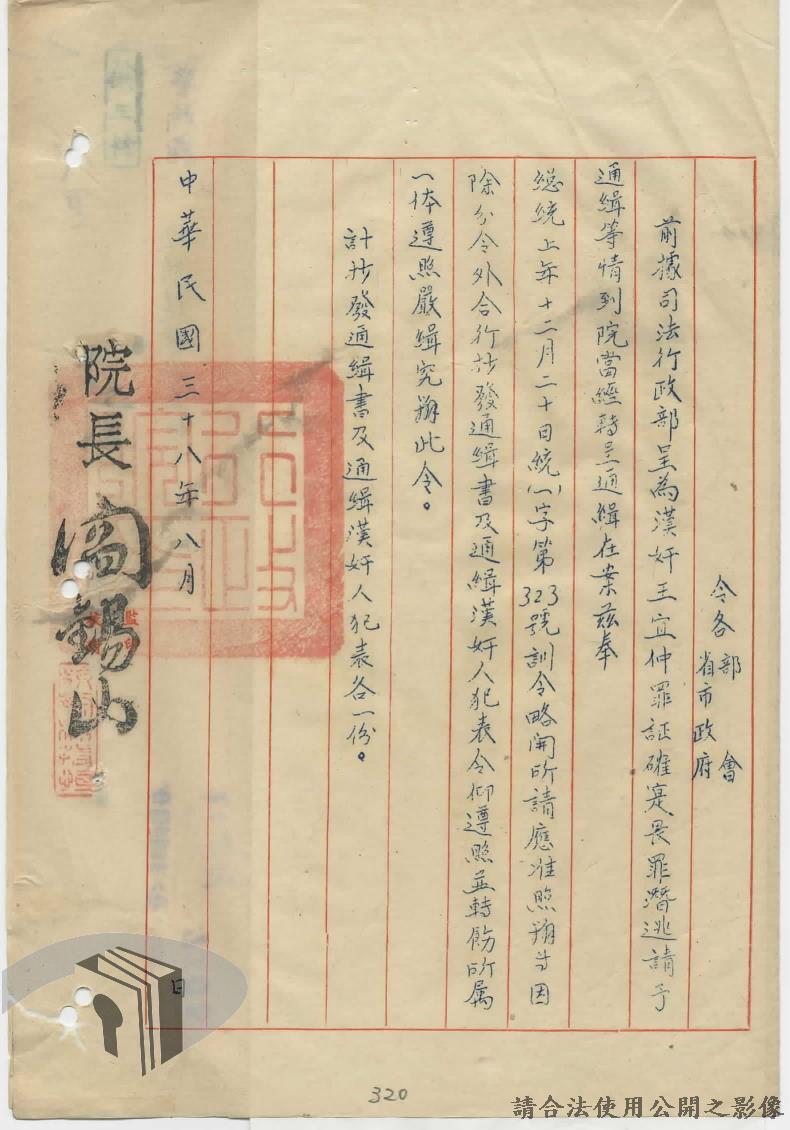 令各部會
省市政府
前據司法行政部呈為漢奸王宜仲罪証確寔畏罪潛逃請予
通緝等情到院當經轉呈通緝在案茲奉
總統上年十二月二十日統(一)字第323號訓令略開所請應准照辦等因
除分令外合行抄發通緝書及通緝漢奸人犯表令仰遵照並轉飭所属
一体遵照嚴緝究辦此令。
計抄發通緝書及通緝漢奸人犯表各一份。
中華民國三十八年八月 日
院長 閻錫山
320
請合法使用公開之影像